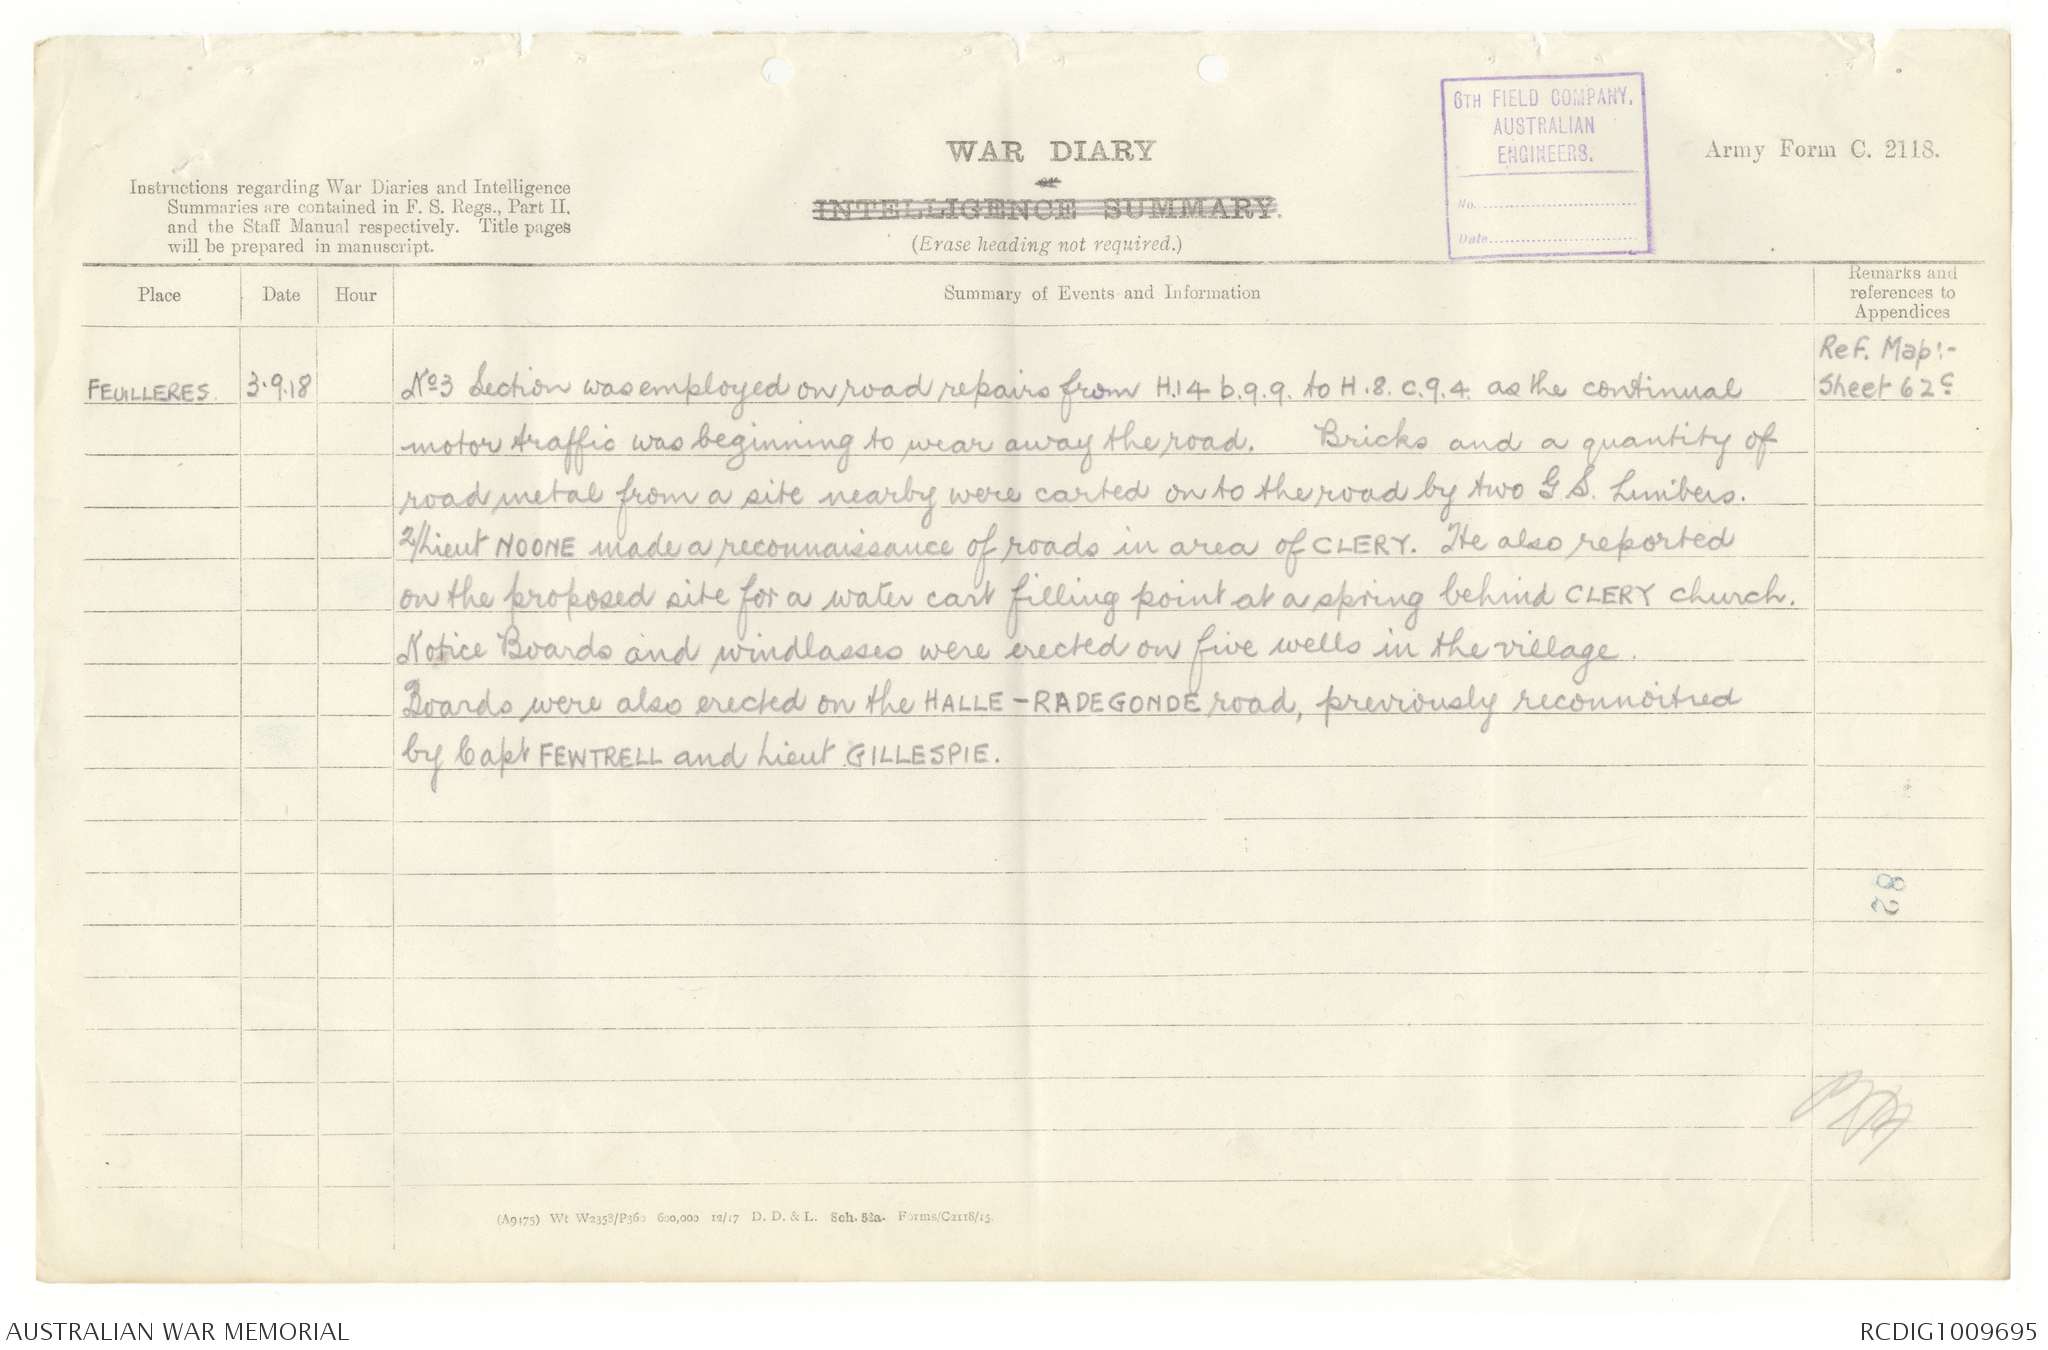 6TH FIELD COMPANY,
AUSTRALIAN
ENGINEERS.
No.
Date
Army Form C. 2118.
WAR DIARY
or
INTELLIGENCE SUMMARY.
(Erase heading not required.)
Instructions regarding War Diaries and Intelligence
Summaries are contained in F. S. Regs., Part II,
and the Staff Manual respectively. Title pages
will be prepared in manuscript.
Place
Date
Hour
Summary of Events and Information
Remarks and
references to
Appendices
Ref. Map:-
Sheet 62c
FEUILLERES
3.9.18
No3 Section was employed on road repairs from H.14 b.9.9. to H.8.c.9.4. as the continual
motor traffic was beginning to wear away the road. Bricks and a quantity of
road metal from a site nearby were carted on to the road by two G.S. Limbers.
2/Lieut NOONE made a reconnaissance of roads in area of CLERY. He also reported
on the proposed site for a water cart filling point at a spring behind CLERY church.
Notice Boards and windlasses were erected on five wells in the village.
Boards were also erected on the HALLE-RADEGONDE road, previously reconnoitred
by Capt FEWTRELL and Lieut GILLESPIE.
82
(A9175) Wt W2358/P360 600,000 12/17 D. D. & L. Sch. 52a. Forms/C2118/15.
AUSTRALIAN WAR MEMORIAL
RCDIG1009695